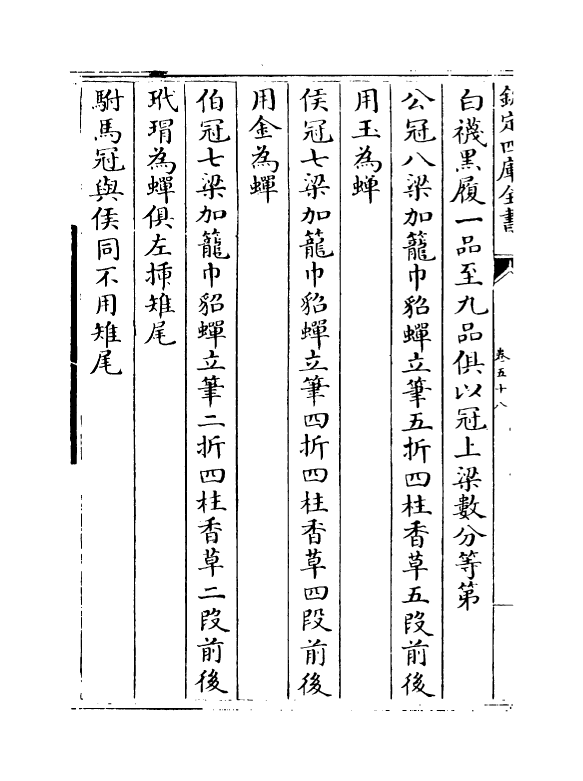 欽定四庫全書
卷五十八
白襪黑履一品至九品俱以冠上梁數分等第
公冠八梁加籠巾貂蟬立筆五折四柱香草五段前後
用玉為蟬
侯冠七梁加籠巾貂蟬立筆四折四柱香草四段前後
用金為蟬
伯冠七梁加籠巾貂蟬立筆二折四柱香草二段前後
玳瑁為蟬俱左揷雉尾
駙馬冠與侯同不用雉尾